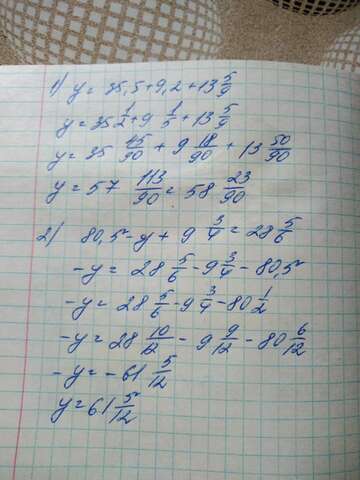 1) y = 35,5 + 9,2 + 13 5/9
y = 35 1/2 + 9 1/5 + 13 5/9
y = 35 45/90 + 9 18/90 + 13 50/90
y = 57 113/90 = 58 23/90
2) 80,5 - y + 9 3/4 = 28 5/6
-y = 28 5/6 - 9 3/4 - 80,5
-y = 28 5/6 - 9 3/4 - 80 1/2
-y = 28 10/12 - 9 9/12 - 80 6/12
-y = -61 5/12
y = 61 5/12